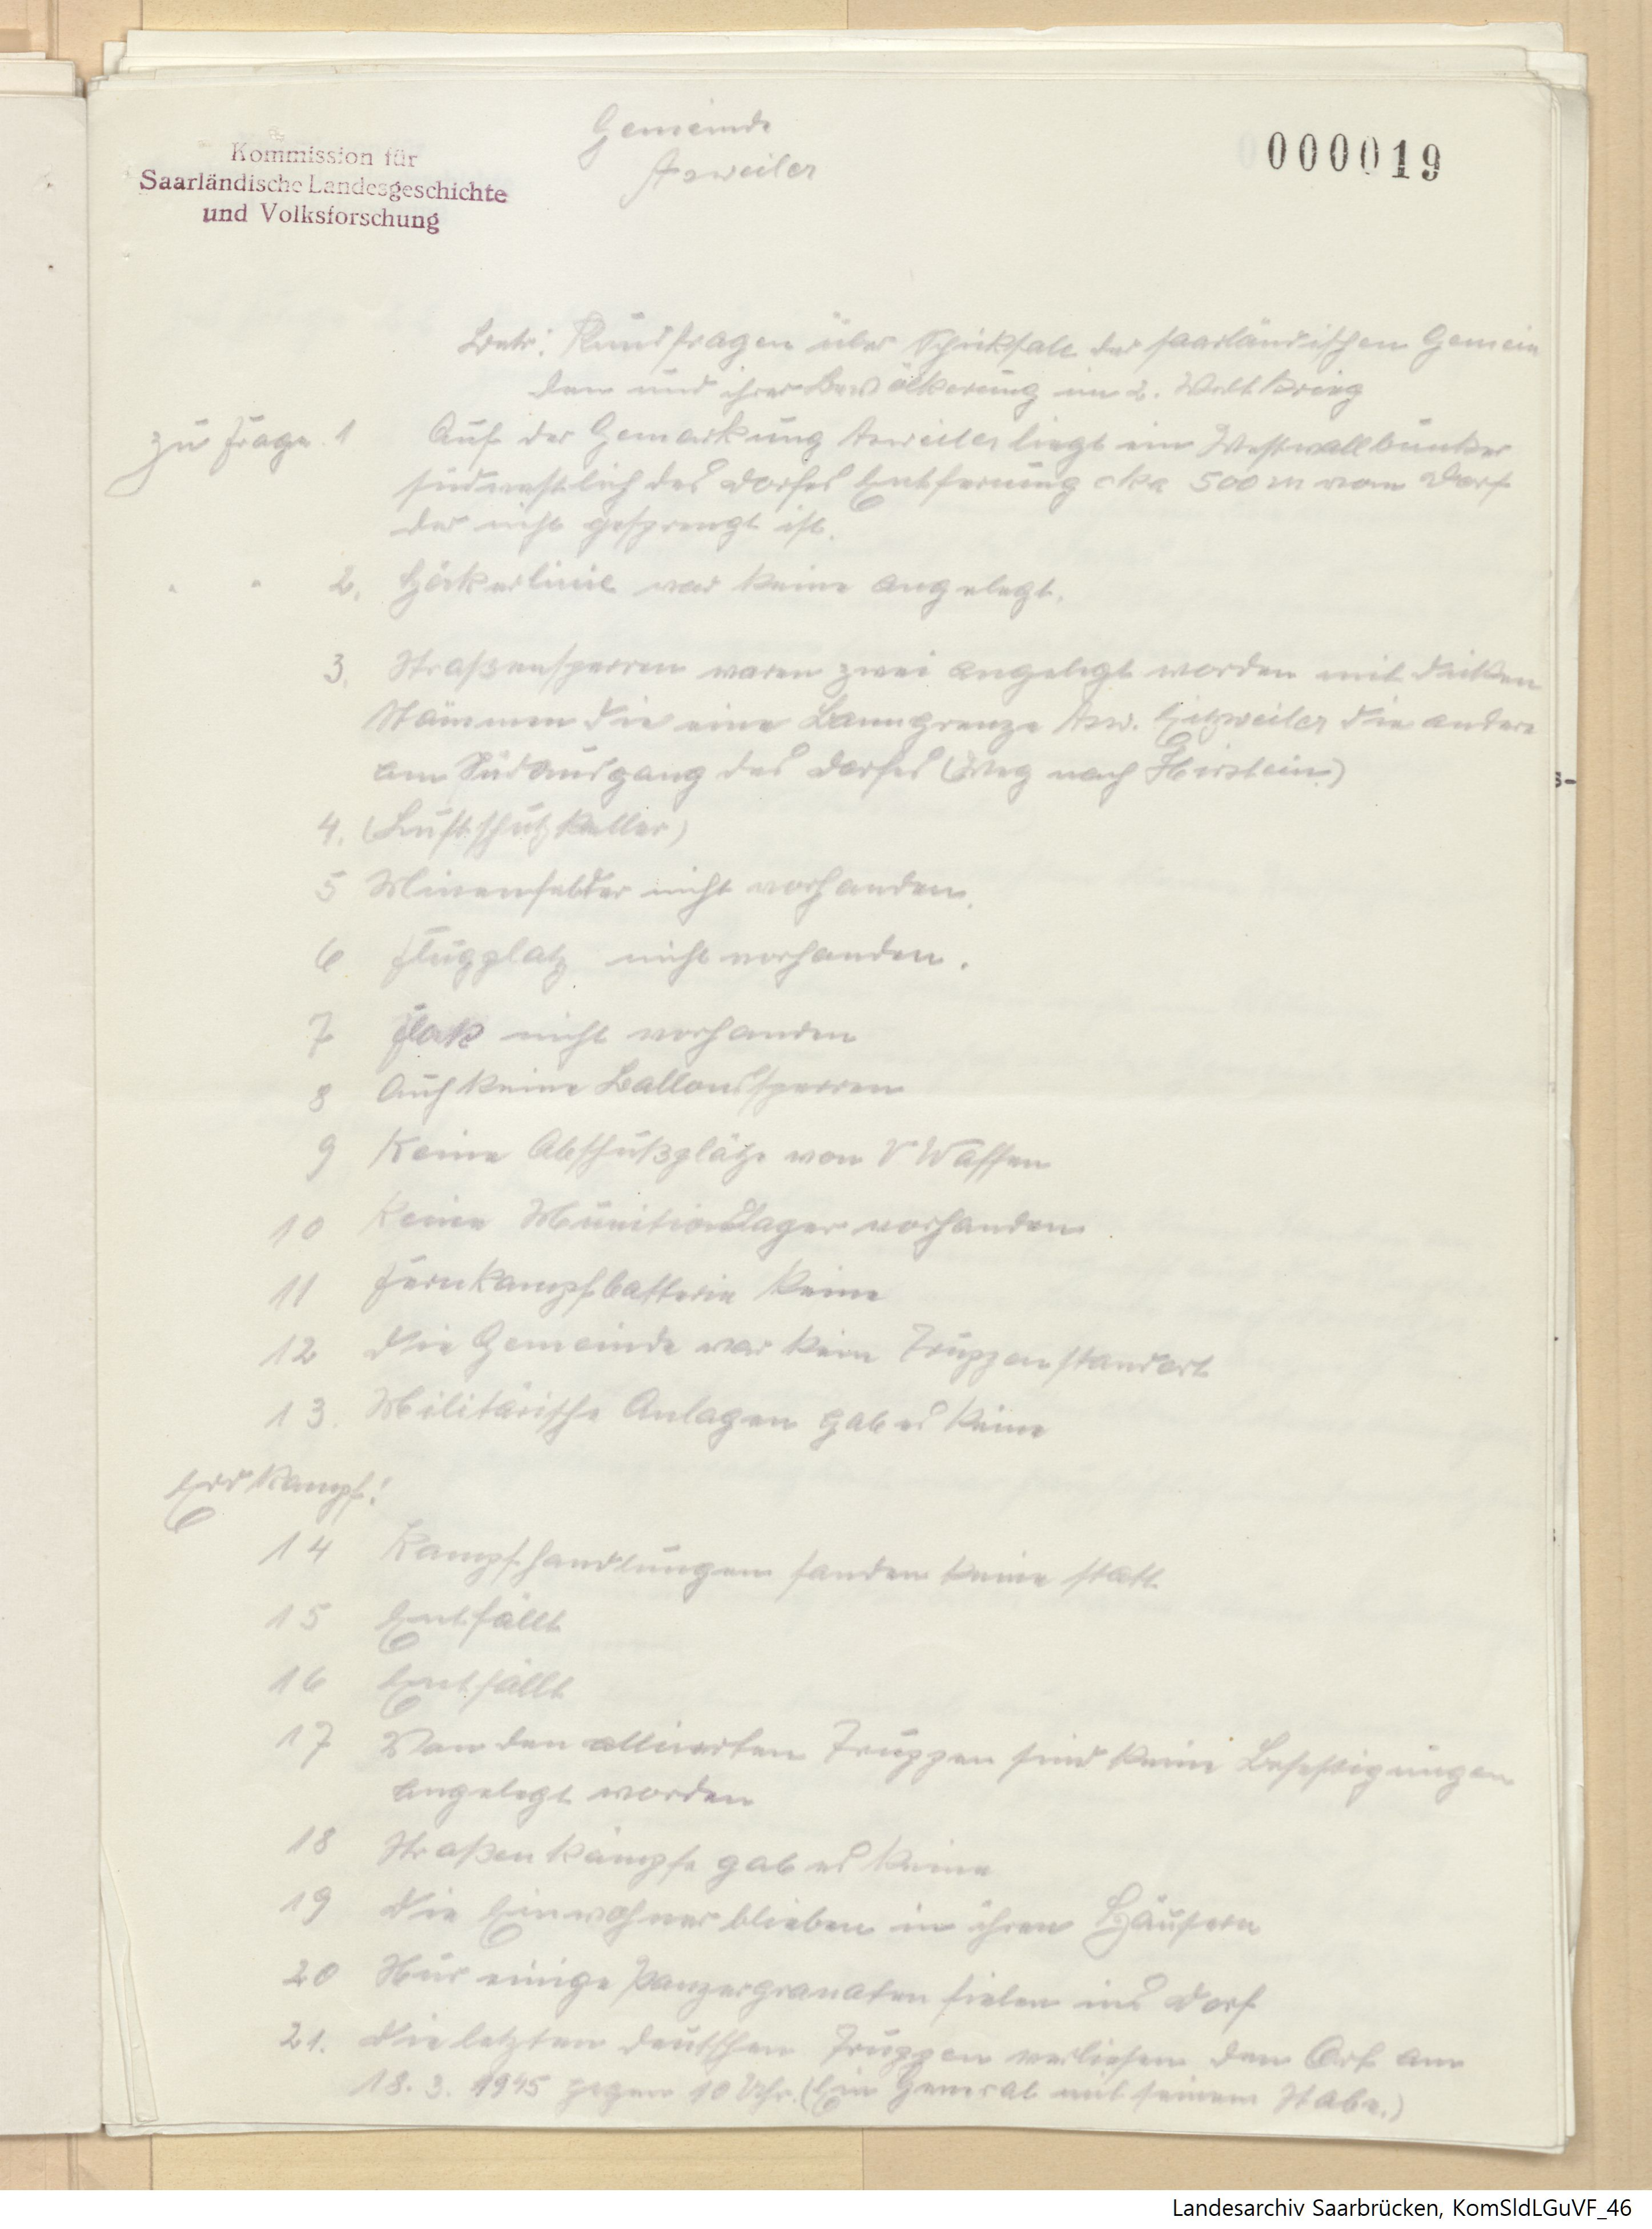 Gemeinde
Asweiler
000019
Kommission für
Saarländische Landesgeschichte
und Volksforschung
Betr: Rundfragen über Schicksale der saarländischen Gemein
den und ihrer Bevölkerung im 2. Weltkrieg
zu Frage. 1 Auf der Gemarkung Asweiler liegt ein Westwallbunker
südwestlich des Dorfes Entfernung cka 500 m vom Dorf
der nicht gesprengt ist.
" " 2. Höckerlinie war keine angelegt.
3. Straßensperren waren zwei angelegt worden mit dicken
Stämmen die eine Banngrenze Asw. Eitzweiler die andere
am Südausgang des Dorfes (Weg nach Hirstein.)
4. (Luftschutzkeller)
5 Minenfelder nicht vorhanden.
6 Flugplatz nicht vorhanden.
7 Flak nicht vorhanden
8 Auch keine Ballonssperren
9 Keine Abschußplätze von V Waffen
10 Keine Munitionslager vorhanden
11 Fernkampfbatterie keine
12 Die Gemeinde war kein Truppenstandort
13. Militärische Anlagen gab es keine
Erdkampf:
14 Kampfhandlungen fanden keine statt
15 Entfällt
16 Entfällt
17 Von den alliierten Truppen sind keine Befestigungen
angelegt worden
18 Straßenkämpfe gab es keine
19 Die Einwohner blieben in ihren Häusern
20 Nur einige Panzergranaten fielen ins Dorf
21. Die letzten deutschen Truppen verließen den Ort am
18. 3. 1945 gegen 10 Uhr. (Ein General mit seinem Stabe.)
Landesarchiv Saarbrücken, KomSldLGuVF_46